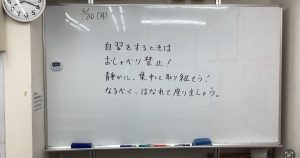 3/30(月)
自習をするときは
おしゃべり禁止！
静かに、集中して取り組もう！
なるべく、はなれて座りましょう。